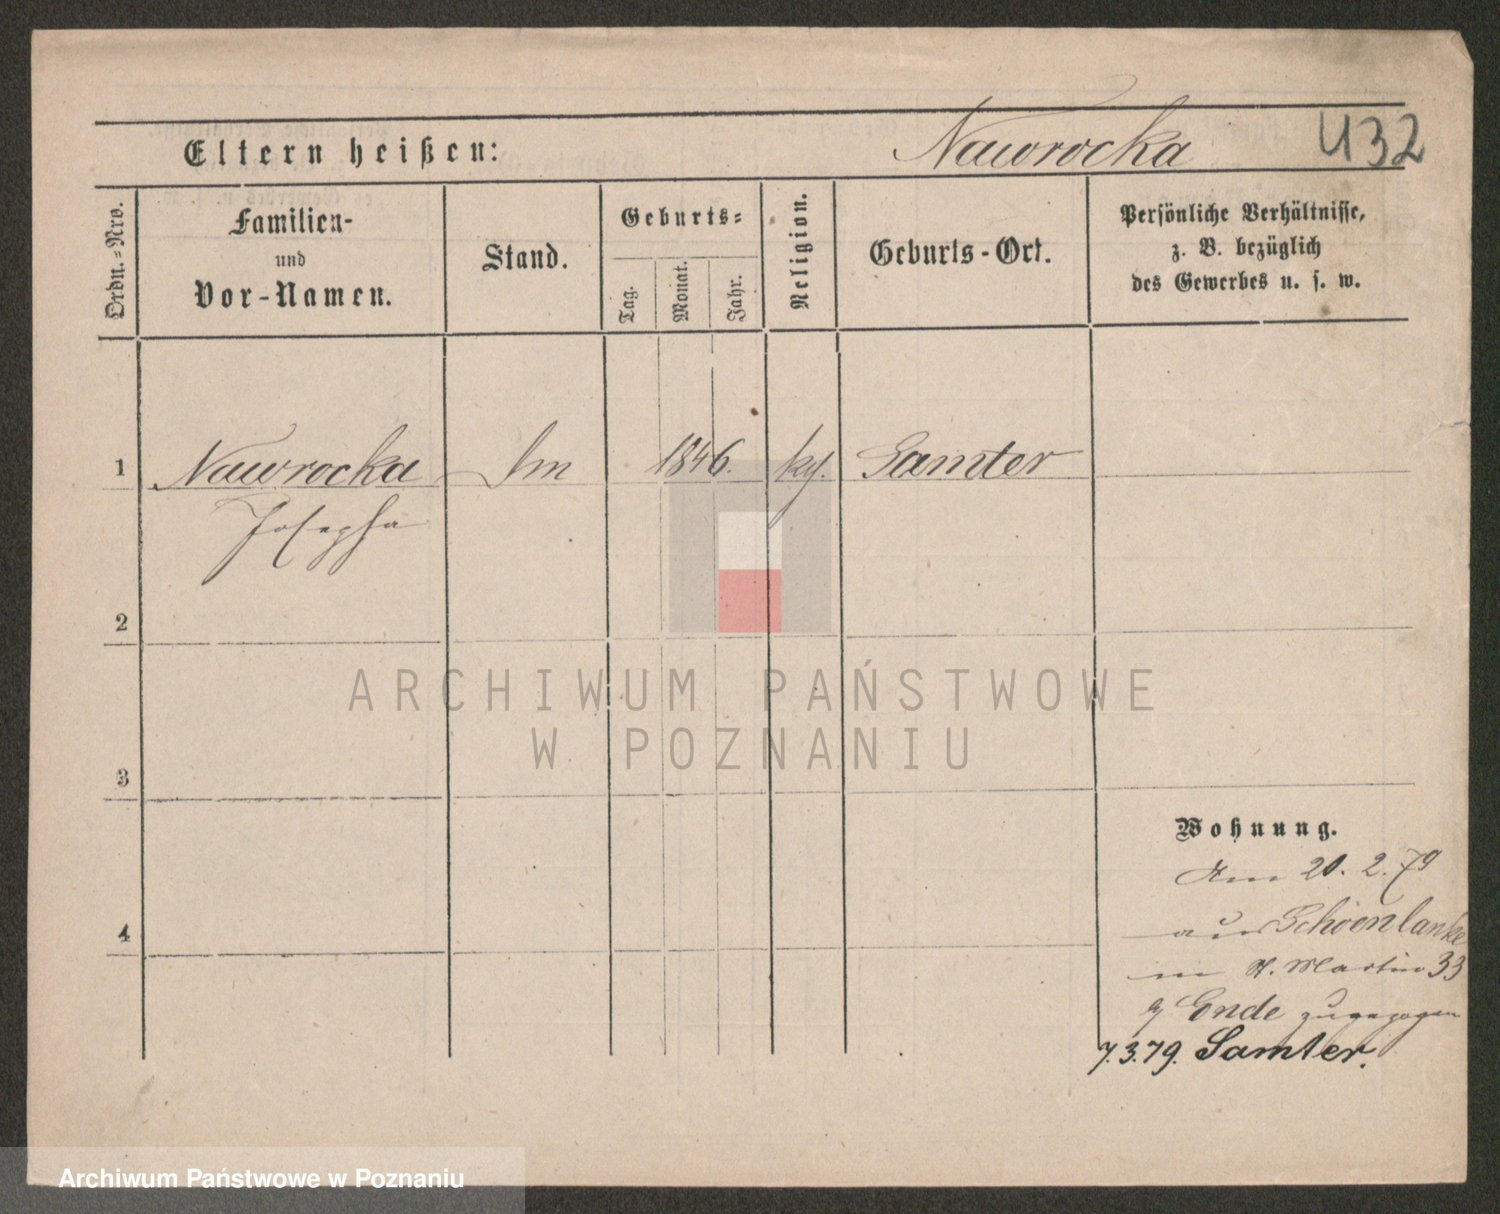 Eltern heißen:
Nawrocka
432
Ordn.-Nro.
Familien-
und
Vor-Namen.
Stand.
Geburts-
Tag.
Monat.
Jahr.
Religion.
Geburts-Ort.
Persönliche Verhältnisse,
z. B. bezüglich
des Gewerbes u. s. w.
1
Nawrocka
1846.
Samter
Josepha
2
ARCHIWUM PAŃSTWOWE
W POZNANIU
3
Wohnung.
Am 20. 2. 79
4
aus Schoenlanke
in St. Martin 33
Ende zugezogen
7.3.79. Samter.
Archiwum Państwowe w Poznaniu